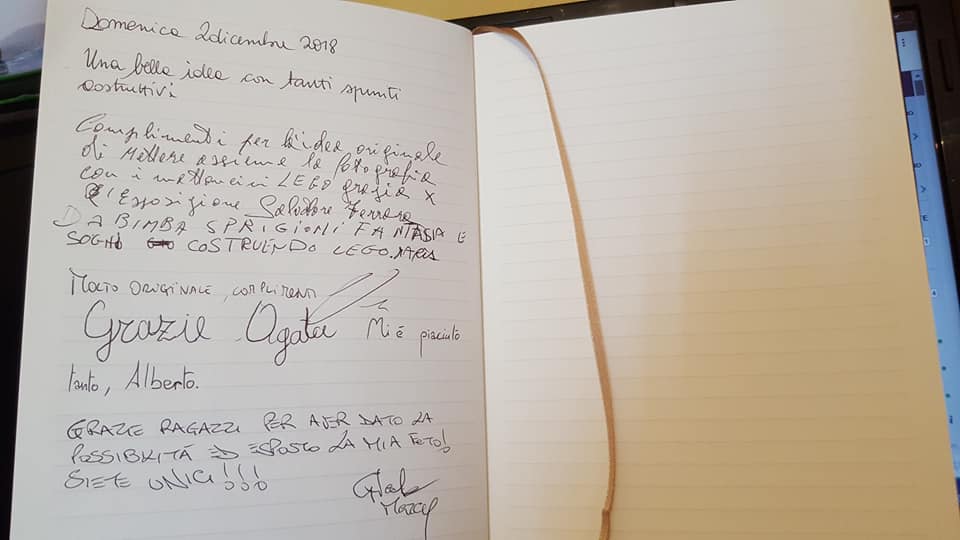 Domenica 2 dicembre 2018
Una bella idea con tanti spunti
costruttivi
Complimenti per l'idea originale
di mettere assieme la fotografia
con i mattoncini LEGO grazie x
l'Esposizione Salvatore Ferrara
DA BIMBA SPRIGIONI FANTASIA E
SOGNI COSTRUENDO LEGO.
MOLTO ORIGINALE, COMPLIMENTI
Grazie Agata Mi é piaciuto
tanto, Alberto.
GRAZIE RAGAZZI PER AVER DATO LA
POSSIBILITÁ ED ESPOSTO LA MIA FOTO!
SIETE UNICI!!!